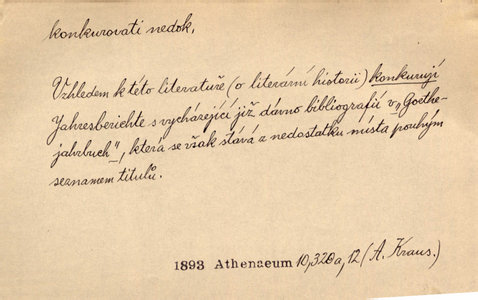 konkurovati nedok,
Vzhledem k této literatuře (o literární historii) konkurují
Jahresberichte s vycházející již dávno bibliografií v „Goethe-
jahrbuch", která se však stává z nedostatku místa pouhým
seznamem titulů.
1893 Athenaeum 10,320a,12 (A. Kraus.)